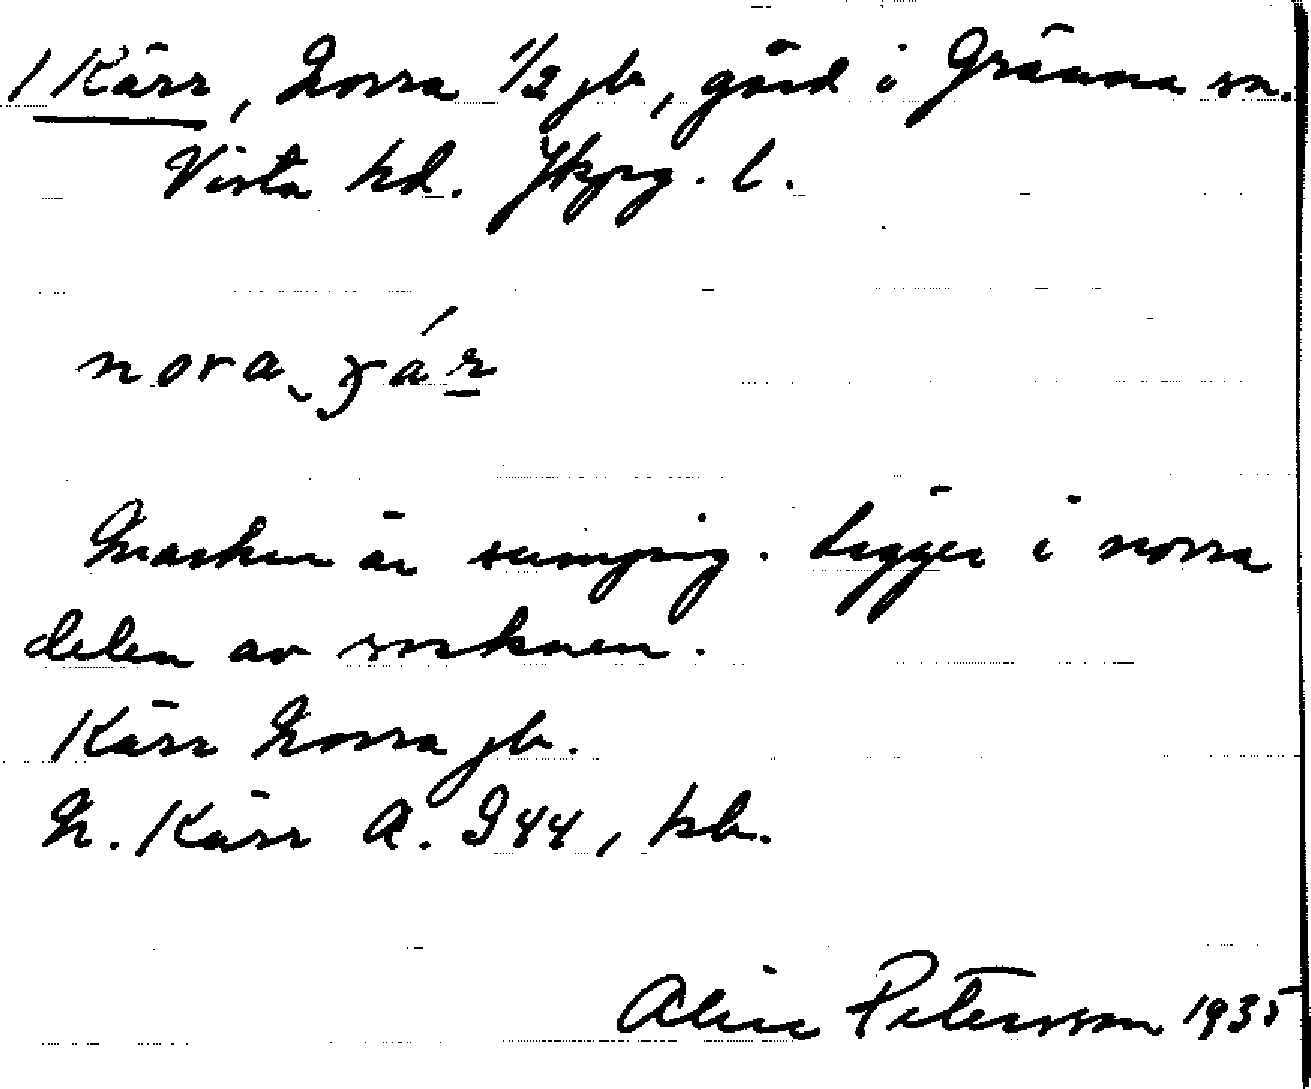 Kärr, Norra 1/2 jb, gård i Gränna sn.
Vista hd. Jkpg. l.
nora
Marken är sumpig. Ligger i norra
delen av socknen.
Kärr Norra jb.
N. Kärr A. I 44, kb.
Alice Petersson 1935